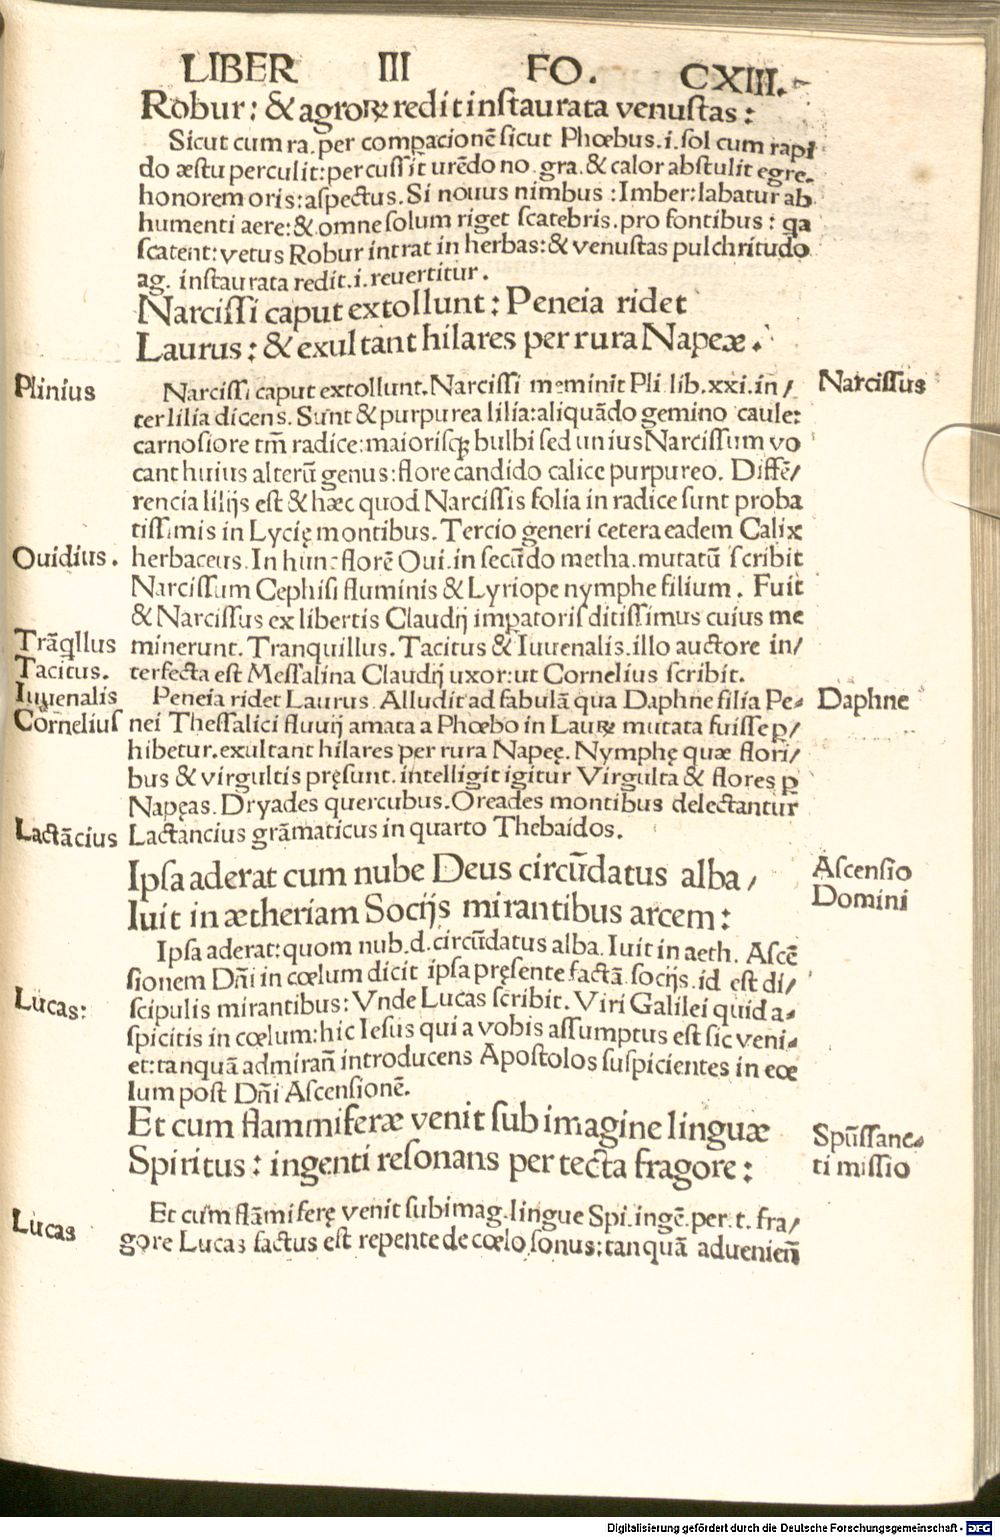 LIBER III FO. CXIII.
Robur: & agroꝝ redit instaurata venustas:
Sicut cum ra. per compacionē sicut Phœbus. i. sol cum rapi
do æstu perculit: percussit urēdo no. gra. & calor abstulit egre.
honorem oris: aspectus. Si nouus nimbus: Imber: labatur ab
humenti aere: & omne solum riget scatebris. pro fontibus: qa
scatent: vetus Robur intrat in herbas: & venustas pulchritudo
ag. instaurata redit. i. reuertitur.
Narcissi caput extollunt: Peneia ridet
Laurus: & exultant hilares per rura Napeæ.
Plinius
Narcissi caput extollunt. Narcissi meminit Pli. lib. xxi. in/
Narcissus
ter lilia dicens. Sunt & purpurea lilia: aliquādo gemino caule:
carnosiore tm̄ radice: maiorisqꝫ bulbi sed unius Narcissum vo
cant huius alterū genus: flore candido calice purpureo. Diffē/
rencia lilijs est & hæc quod Narcissis folia in radice sunt proba
tissimis in Lycię montibus. Tercio generi cetera eadem Calix
Ouidius.
herbaceus. In hunc florē Oui. in secūdo metha. mutatū scribit
Narcissum Cephisi fluminis & Lyriope nymphe filium. Fuit
& Narcissus ex libertis Claudij impatoris ditissimus cuius me
Trāq̄llus
minerunt. Tranquillus. Tacitus & Iuuenalis. illo auctore in/
Tacitus.
terfecta est Messalina Claudij uxor: ut Cornelius scribit.
Iuuenalis
Peneia ridet Laurus. Alludit ad fabulā qua Daphne filia Pe-
Daphne
Cornelius
nei Thessalici fluuij amata a Phœbo in Lauꝝ mutata fuisse ꝑ/
hibetur. exultant hilares per rura Napeę. Nymphę quæ flori/
bus & virgultis pręsunt. intelligit igitur Virgulta & flores ꝑ
Napęas. Dryades quercubus. Oreades montibus delectantur
Lactācius
Lactancius grāmaticus in quarto Thebaidos.
Ipsa aderat cum nube Deus circūdatus alba/
Ascensio
Domini
Iuit in ætheriam Socijs mirantibus arcem:
Ipsa aderat: quom nub. d. circūdatus alba. Iuit in aeth. Ascē
sionem Dn̄i in cœlum dicit ipsa pręsente factā socijs. id est di/
Lucas:
scipulis mirantibus: Vnde Lucas scribit. Viri Galilei quid a-
spicitis in cœlum: hic Iesus qui a vobis assumptus est sic veni-
et: tanquā admirañ introducens Apostolos suspicientes in cœ
lum post Dn̄i Ascensionē.
Et cum flammiferæ venit sub imagine linguæ
Spūssanc-
ti missio
Spiritus: ingenti resonans per tecta fragore:
Lucas
Et cum flāmiferę venit sub imag. lingue Spi. ingē. per. t. fra/
gore Lucas factus est repente de cœlo sonus: tanquā advenieñ
Digitalisierung gefördert durch die Deutsche Forschungsgemeinschaft - DFG